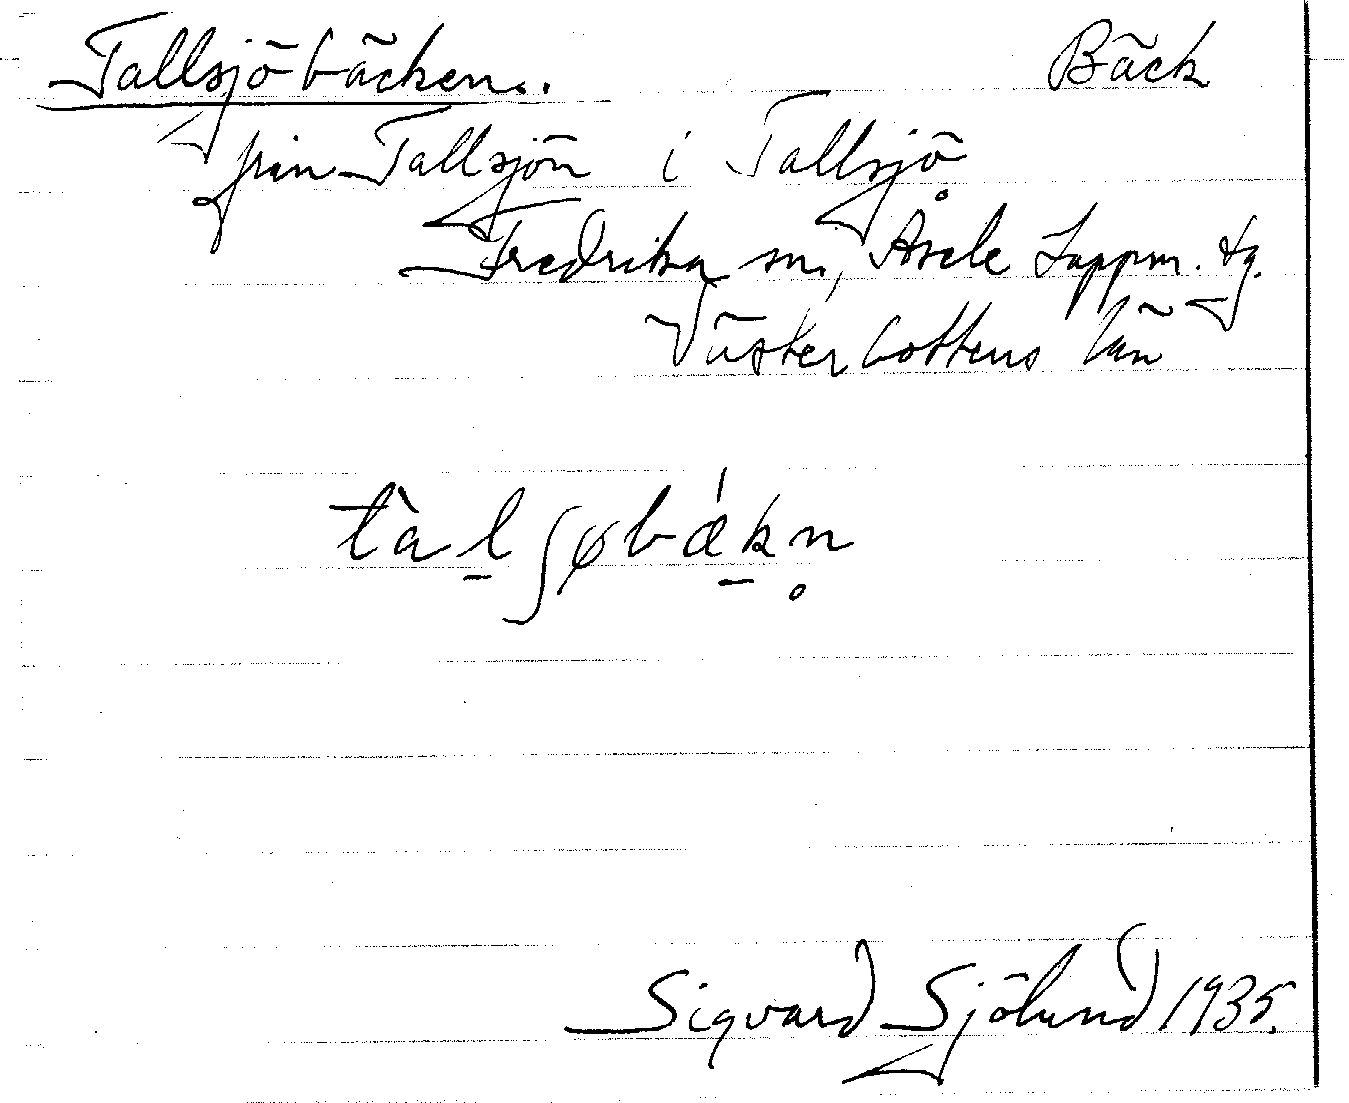 Tallsjöbäcken.. Bäck
från Tallsjön i Tallsjö
Fredrika sn, Åsele Lappm. tg.
Västerbottens län
tàl̠ʃøbǽ̠kn̥
Sigvard Sjölund 1935.